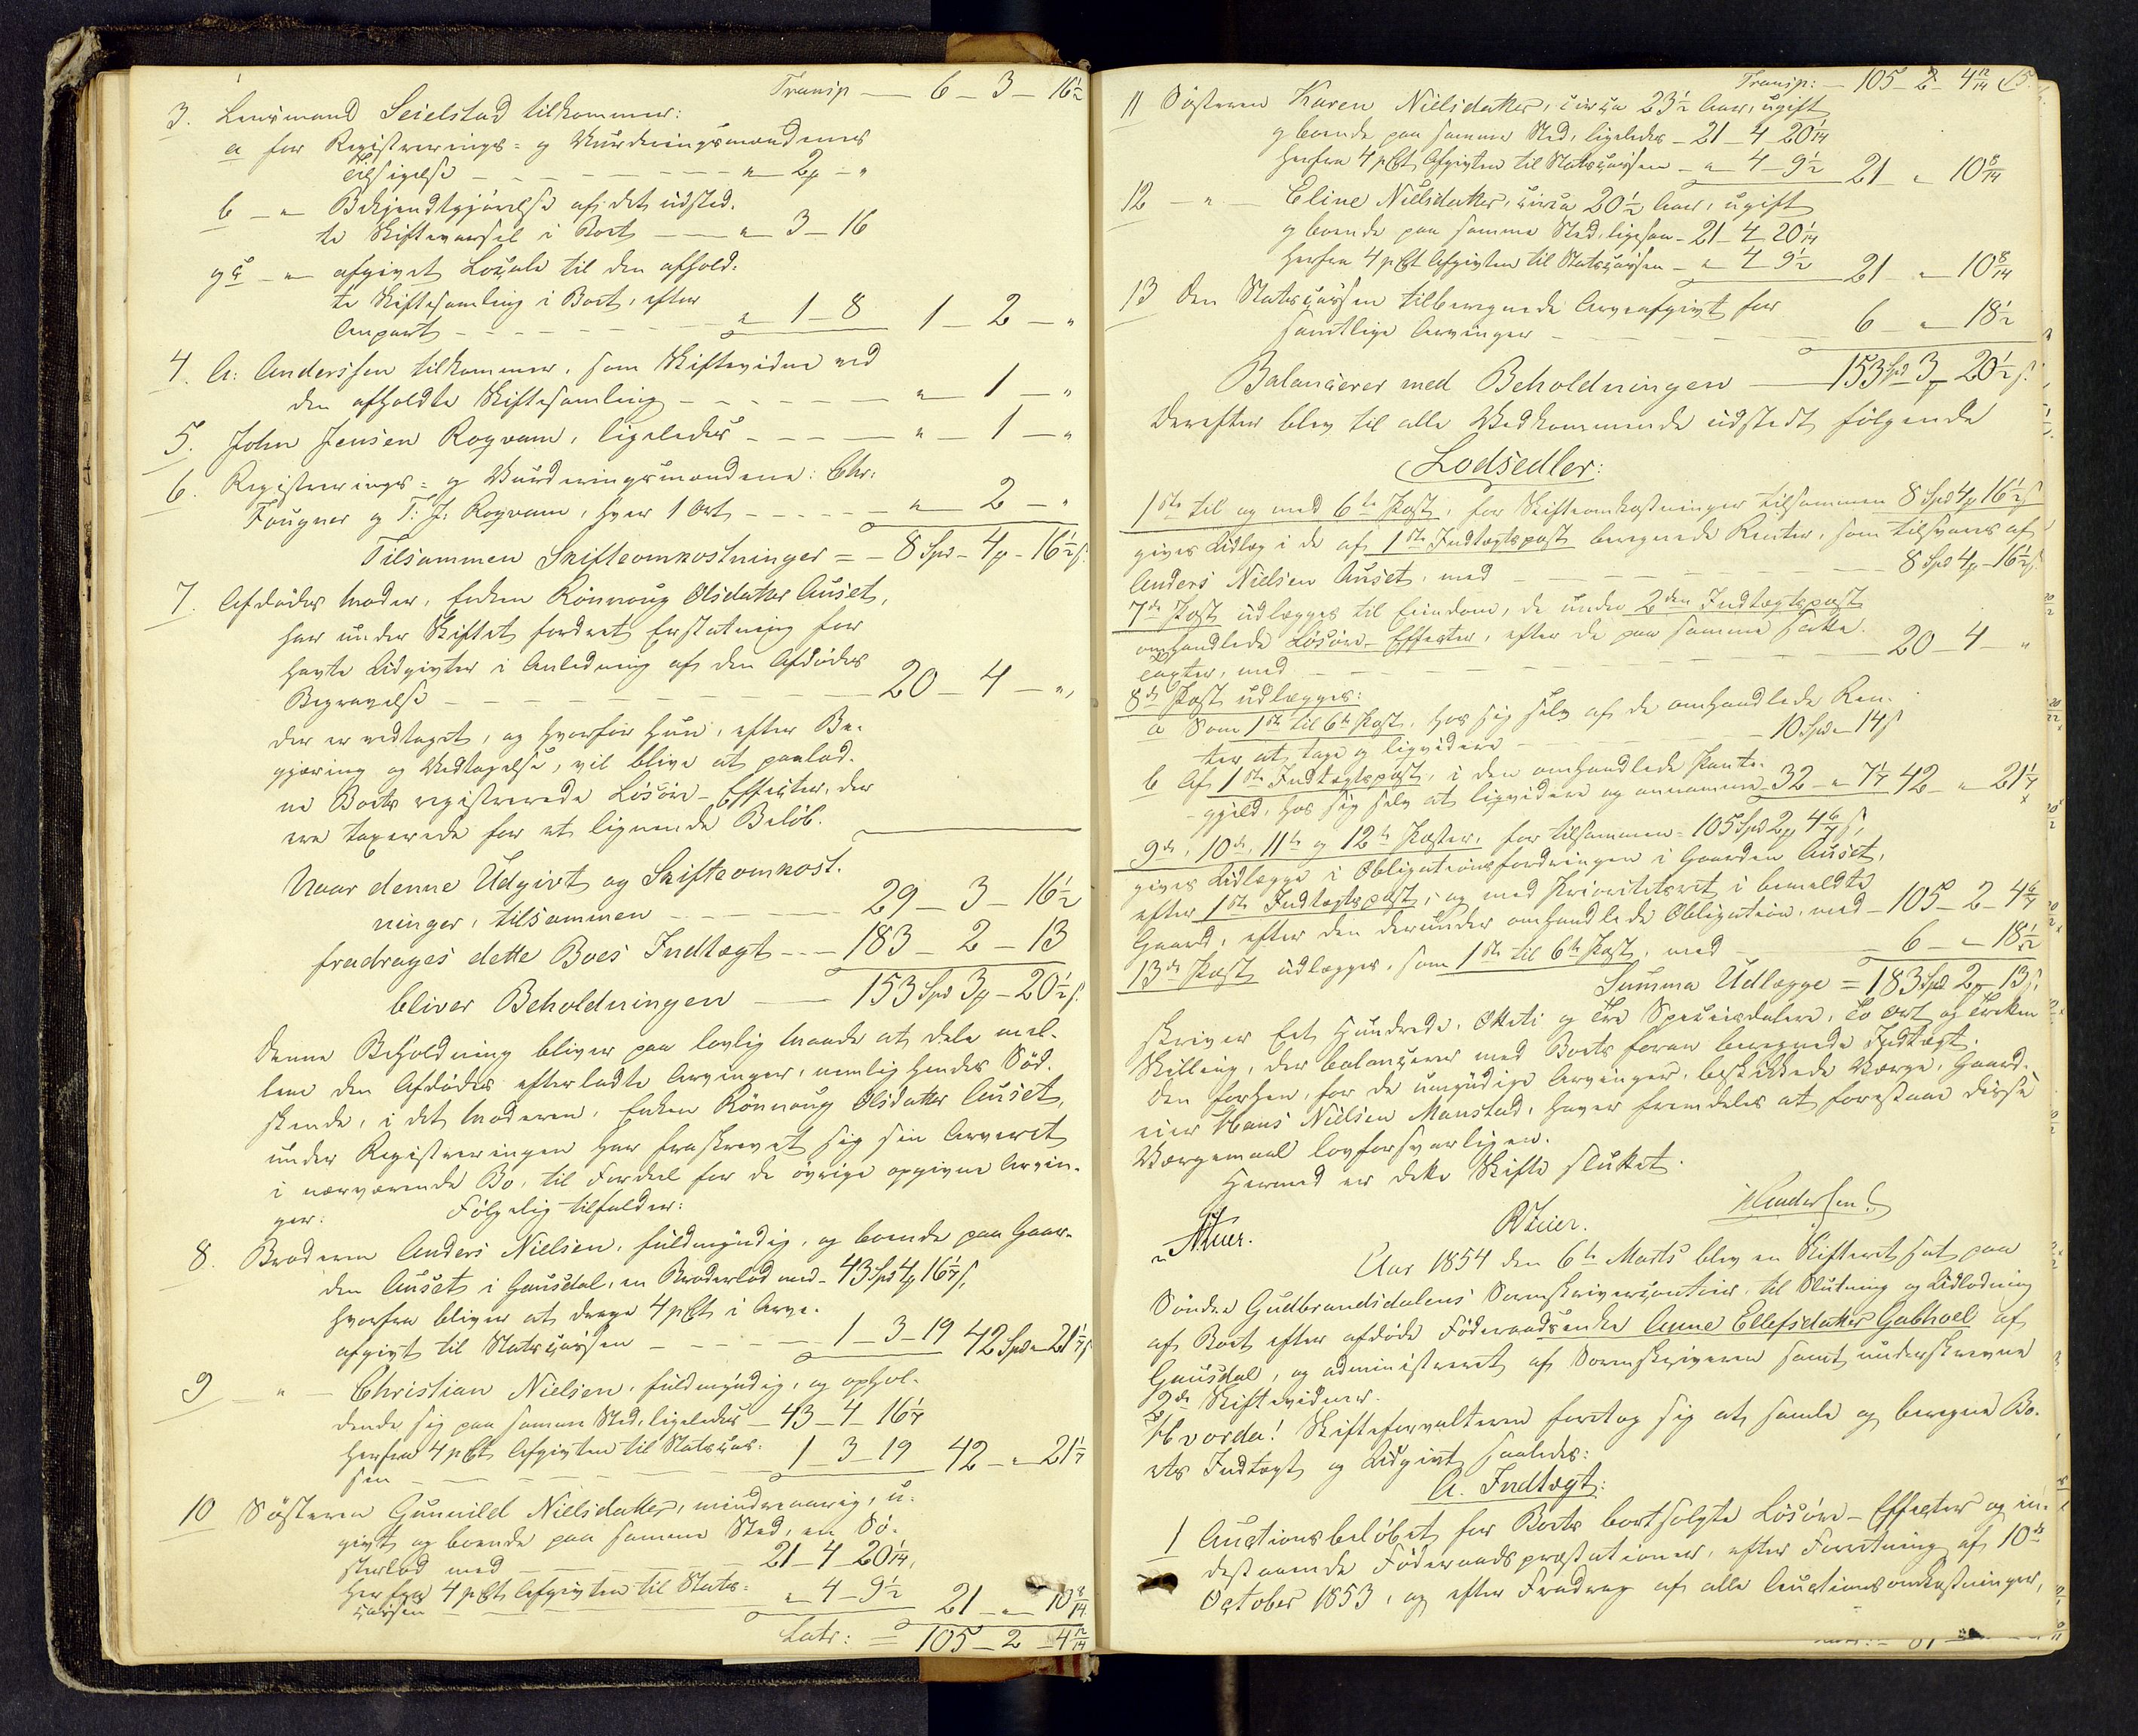 Transp — 6 — 3 — 16½
3. Lensmand Seielstad tilkommer:
a for Registrerings- og Vurderingsmændenes
Tilsigelse — " — 2 — "
b — " — Bekjendtgjørelse af det udsted-
te Skiftevarsel i Boet — " — 3 — 16
og c — " — afgivet Locale til den afhold-
te Skiftesamling i Boet, efter
Anpart — " — 1 — 8 1 — 2 — "
4. A: Anderssen tilkommer, som Skiftevidne ved
den afholdte Skiftesamling — " — 1 — "
5. John Jensen Rogvam, ligeledes — " 1 — "
6. Registrerings- og Vurderingsmændene: Chr:
Fougner og T: J: Rogvam, hver 1 Ort — " — 2 — "
Tilsammen Skifteomkostninger = — 8 Spd — 4 — 16½ s.
7. Afdødes Moder, Enken Rönnoug Olsdatter Auset,
har under Skiftet fordret Erstatning for
havte Udgivter i Anledning af den Afdødes
Begravelse — 20 — 4 — ",
der er vedtaget, og hvorfor hun, efter Be-
gjæring og Vedtagelse, vil blive at paalod-
ne Boets registrerede Lösöre-Effecter, der
ere taxerede for et lignende Belöb.
Naar denne Udgivt og Skifteomkost-
ninger, tilsammen — 29 — 3 — 16½
fradrages dette Boes Indtægt — 183 — 2 — 13
bliver Beholdningen — 153 Spd 3 — 20½ s.
Denne Beholdning bliver paa lovlig Maade at dele mel-
lem den Afdødes efterladte Arvinger, nemlig hendes Söd-
skende, i det Moderen, Enken Rönnoug Olsdatter Auset,
under Registreringen har fraskrevet sig sin Arveret
i nærværende Bo, til Fordeel for de övrige opgivne Arvin-
ger: Fölgelig tilfalder:
8. Broderen Anders Nielsen, fuldmyndig, og boende paa Gaar-
den Auset i Gausdal, en Broderlod med — 43 Spd 4 16 1/7 s,
hvorfra bliver at drage 4 pCt i Arve-
afgivt til Statscassen — 1 — 3 — 19 42 Spd " 21 1/7 s
9 — " — Christian Nielsen, fuldmyndig, og ophol-
dende sig paa samme Sted, ligeledes — 43 — 4 — 16 1/7
herfra 4 pCt Afgivten til Statscas-
sen — 1 — 3 — 19 42 — " — 21 1/7
10 Søsteren Gunnild Nielsdatter, mindreaarig, u-
givt og boende paa samme Sted, en Sö-
sterlod med — 21 — 4 — 20 1/14,
Herfra 4 pCt Afgivten til Stats-
cassen — " — 4 — 9½ 21 — " — 10 8/14
Latr: = 105 — 2 — 4 12/14
Transp: — 105 — 2 — 4 12/14 15.
11 Søsteren Karen Nielsdatter, circa 23½ Aar, ugift
og boende paa samme Sted, ligeledes — 21 — 4 — 20 1/14
herfra 4 pCt Afgivten til Statscassen — " — 4 — 9½ 21 — " 10 8/14
12 — " — Eline Nielsdatter, circa 20½ Aar, ugift
og boende paa samme Sted, ligesaa — 21 — 4 — 20 1/14
herfra 4 pCt Afgivten til Statscassen — " 4 — 9½ 21 — " — 10 8/14
13 Den Statscassen tilberegnede Arveafgivt for
samtlige Arvinger — 6 — " — 18½
Balancerer med Beholdningen — 153 Spd 3 — 20½ s.
Derefter blev til alle Vedkommende udstedt fölgende
Lodsedler:
1ste til og med 6te Post, for Skifteomkostninger tilsammen 8 Spd 4 16½ s
gives Udlæg i de af 1ste Indtægtspost beregnede Renter, som tilsvares af
Anders Nielsen Auset, med — 8 Spd 4 — 16½ s.
7de Post udlægges til Eiendom, de under 2den Indtægtspost
omhandlede Lösöre-Effecter, efter de paa samme satte
Taxter, med — 20 — 4 — "
8de Post udlægges:
a Som 1ste til 6te Post, hos sig selv af de omhandlede Ren-
ter at tage og liqvidere — 10 Spd " 14 s
b Af 1ste Indtægtspost, i den omhandlede Pante-
gjeld, hos sig selv at liqvidere og annamme — 32 — " 7 1/7 42 — " 21 1/7
9de, 10de, 11te og 12te Poster, for tilsammen = 105 Spd 2 4 6/7 s,
gives Udlægge i Obligationsfordringen i Gaarden Auset,
efter 1ste Indtægtspost, og med Prioritetsret i bemeldte
Gaard, efter den derunder omhandlede Obligation, med — 105 — 2 — 4 6/7
13de Post udlægges, som 1ste til 6te Post, med — 6 — " 18½
Summa Udlægge = 183 Spd 2 — 13 s.
skriver Eet Hundrede, Otteti og Tre Speciedaler, To Ort og Tretten
Skilling, der balancerer med Boets foran beregnede Indtægt.
Den forhen, for de umyndige Arvinger, beskikkede Værge, Gaard-
eier Hans Nielsen Manstad, haver fremdeles at forestaae disse
Værgemaal lovforsvarligen.
Hermed er dette Skifte sluttet.
RVeier. Anderssen
Aar 1854 den 6te Marts blev en Skifteret sat paa
Söndre Gudbrandsdalens Sorenskrivercontoir, til Slutning og Udlodning
af Boet efter afdöde Föderaadsenke Anne Ellefsdatter Gabhoel af
Gausdal, og administreret af Sorenskriveren samt underskrevne
2de Skiftevidner.
Hvorda! Skifteforvalteren foretog sig at samle og beregne Bo-
ets Indtægt og Udgivt saaledes:
A. Indtægt:
1 Auctionsbelöbet for Boets bortsolgte Lösöre-Effecter og in-
destaaende Föderaadspræstationer, efter Forretning af 10de
October 1853, og efter Fradrag af alle Auctionsomkostninger,